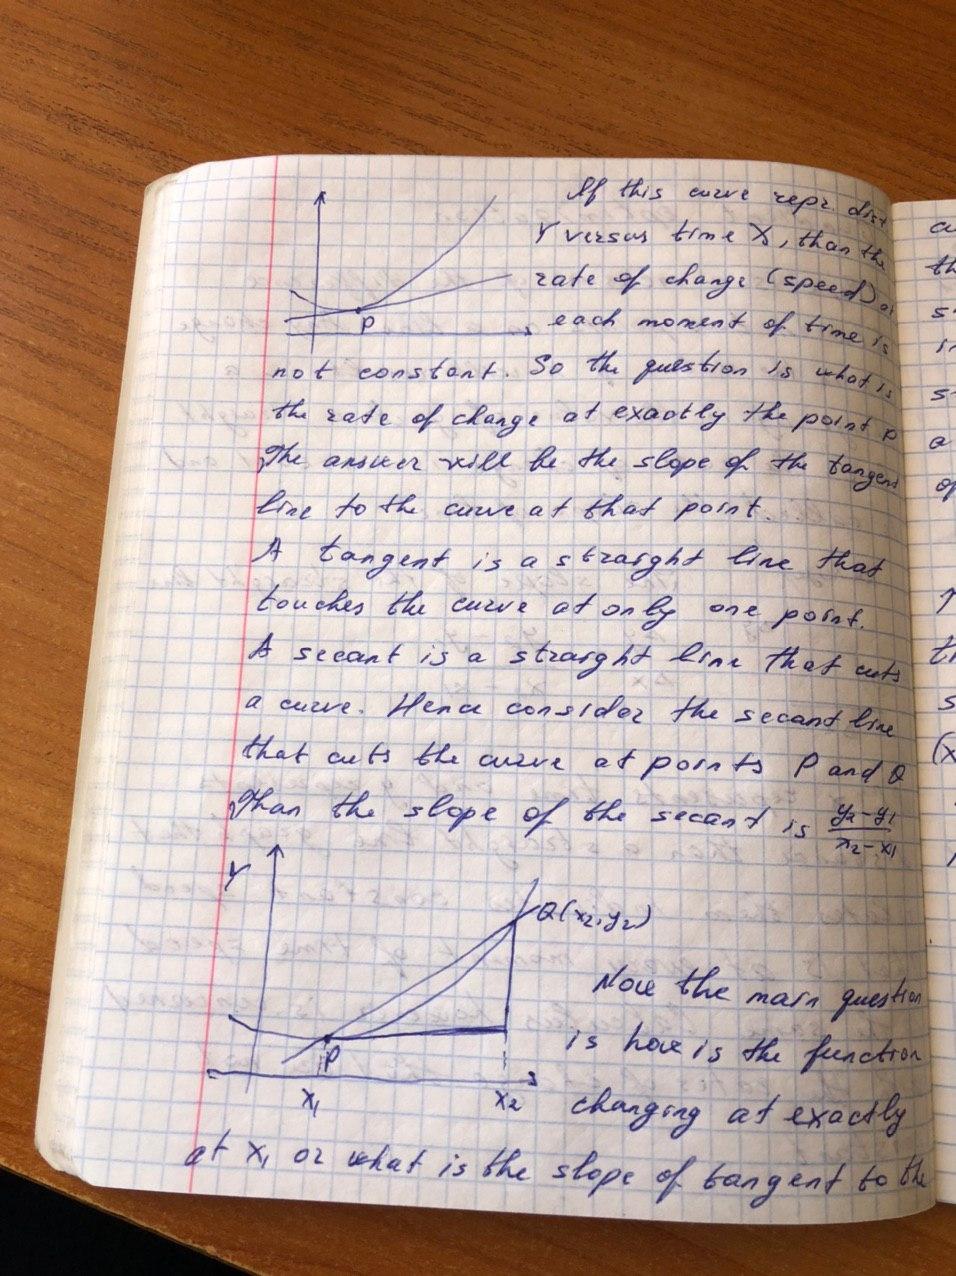 If this curve repr. dist
Y versus time X, than the
rate of change (speed) at
each moment of time is
P
not constant. So the question is what is
the rate of change at exactly the point P
The answer will be the slope of the tangent
line to the curve at that point.
A tangent is a straight line that
touches the curve at only one point.
A secant is a straight line that cuts
a curve. Hence consider the secant line
that cuts the curve at points P and Q
Than the slope of the secant is y₂-y₁ / x₂-x₁
Y
Q(x₂,y₂)
Now the main question
is how is the function
P
X₁ X₂
changing at exactly
at X₁ or what is the slope of tangent to the